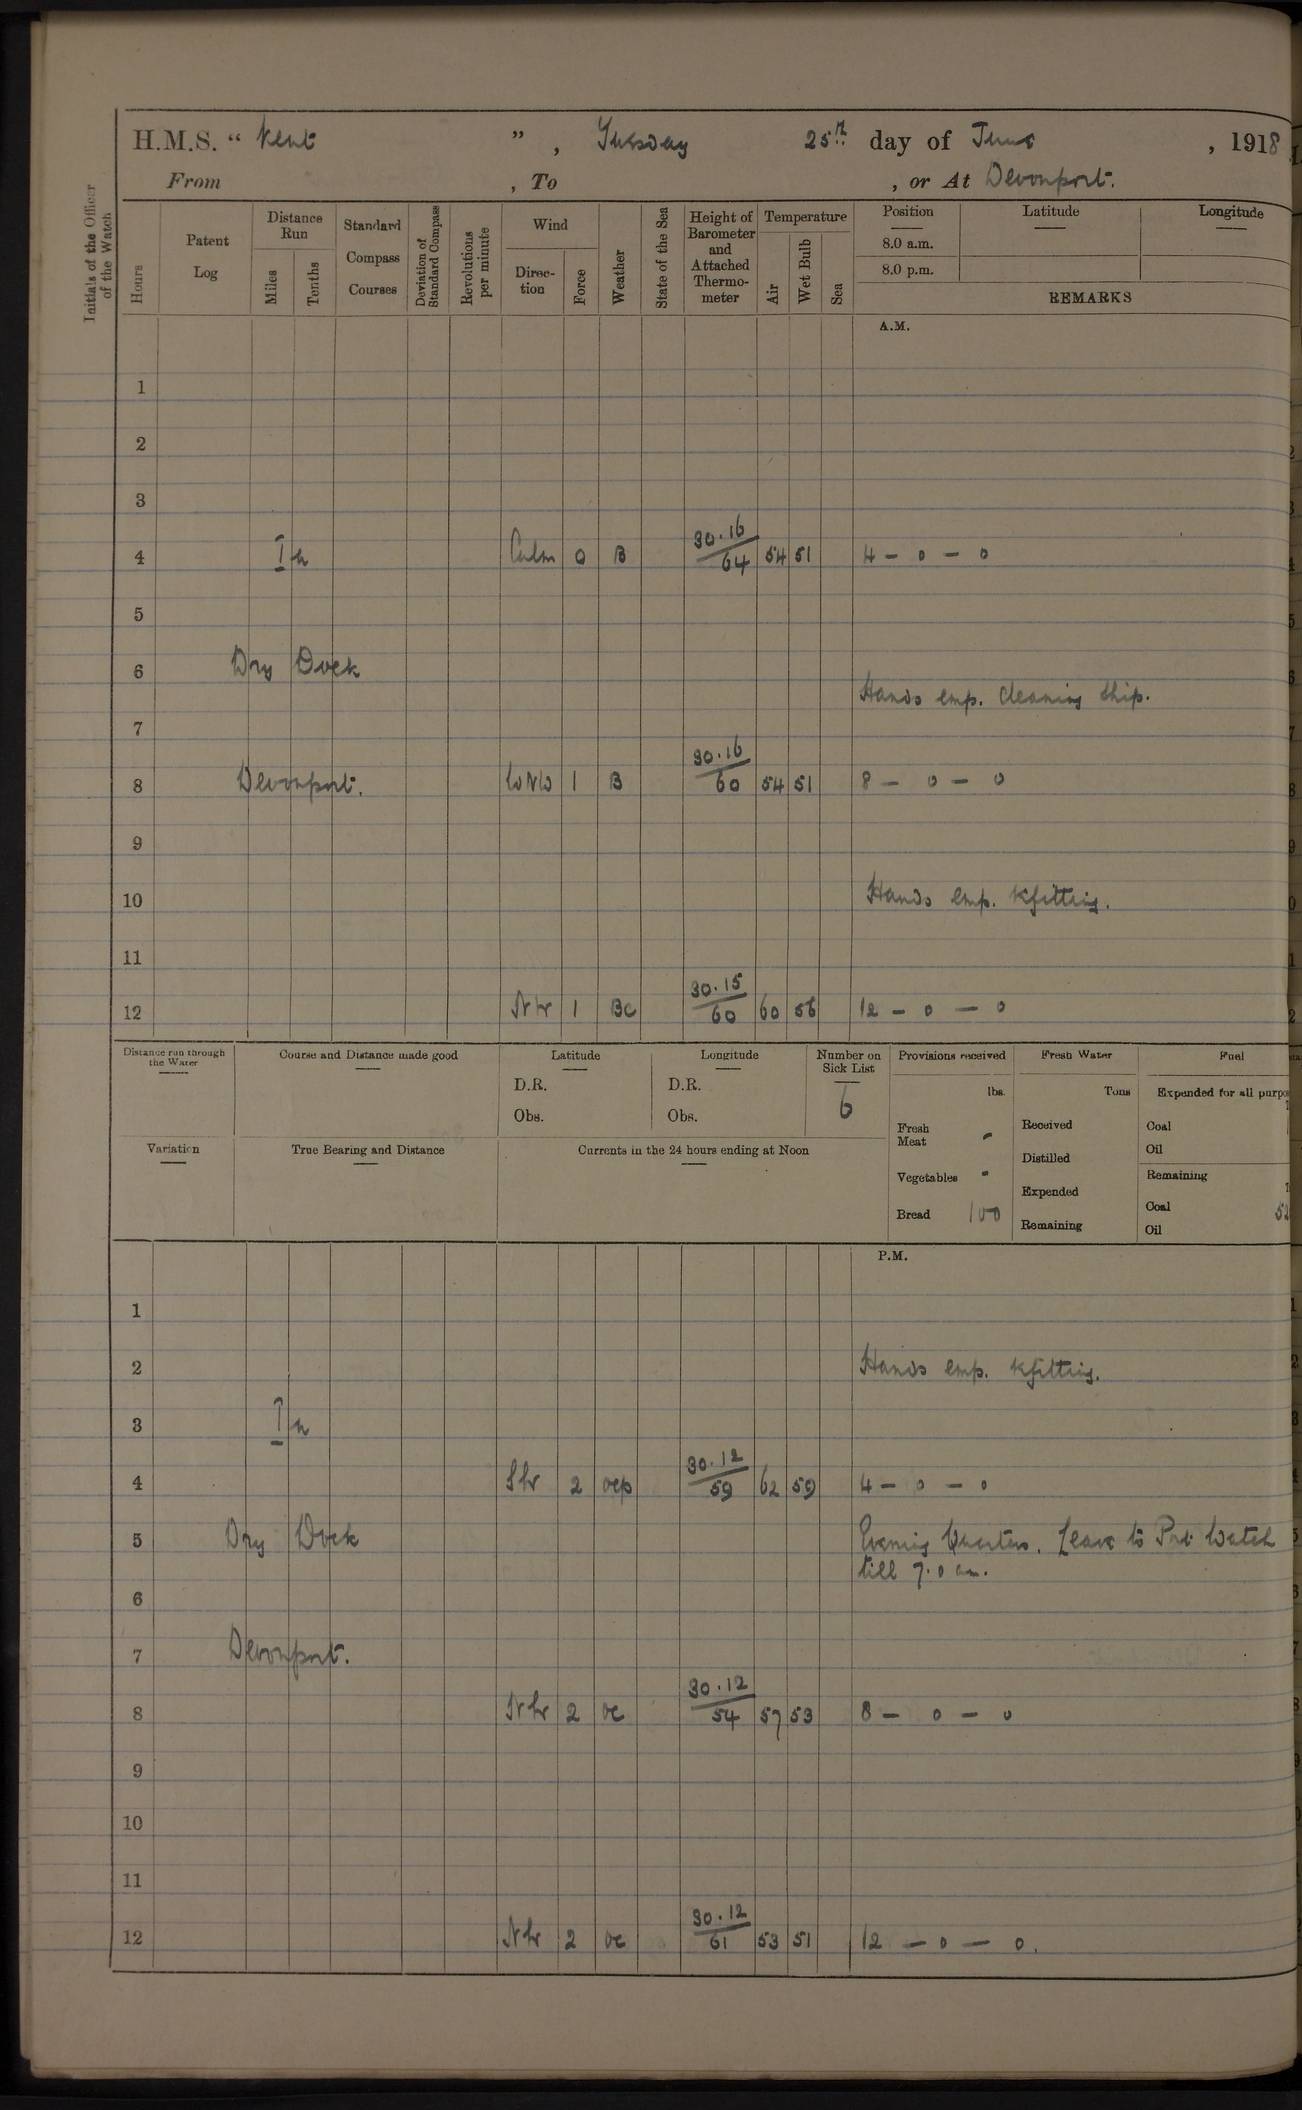 H.M.S. " Kent ", Tuesday 25th day of June, 1918
From , To , or At Devonport.
Initials of the Officer of the Watch
Hours
Patent Log
Distance Run
Miles
Tenths
Standard Compass Courses
Deviation of Standard Compass
Revolutions per minute
Wind
Direction
Force
Weather
State of the Sea
Height of Barometer and Attached Thermometer
Temperature
Air
Wet Bulb
Sea
Position Latitude Longitude
8.0 a.m.
8.0 p.m.
REMARKS
A.M.
1
2
3
4 In Calm 0 B 30.16/64 54 51 4 – 0 – 0
5
6 Dry Dock
Hands emp. cleaning ship.
7
8 Devonport. WNW 1 B 30.16/60 54 51 8 – 0 – 0
9
10 Hands emp. refitting.
11
12 1 BC 30.15/60 60 56 12 – 0 – 0
Distance run through the Water
Course and Distance made good
Latitude
D.R.
Obs.
Longitude
D.R.
Obs.
Number on Sick List
6
Provisions received
lbs.
Fresh Meat -
Vegetables -
Bread 100
Fresh Water
Tons
Received
Distilled
Expended
Remaining
Fuel
Coal
Oil
Remaining
Coal
Oil
Variation
True Bearing and Distance
Currents in the 24 hours ending at Noon
P.M.
1
2 Hands emp. refitting.
3 In
4 2 ocp 30.12/59 62 59 4 – 0 – 0
5 Dry Dock Evening Quarters. Leave to Port Watch
till 7.0 am.
6
7 Devonport.
8 2 oc 30.12/54 57 53 8 – 0 – 0
9
10
11
12 2 oc 30.12/61 53 51 12 – 0 – 0.